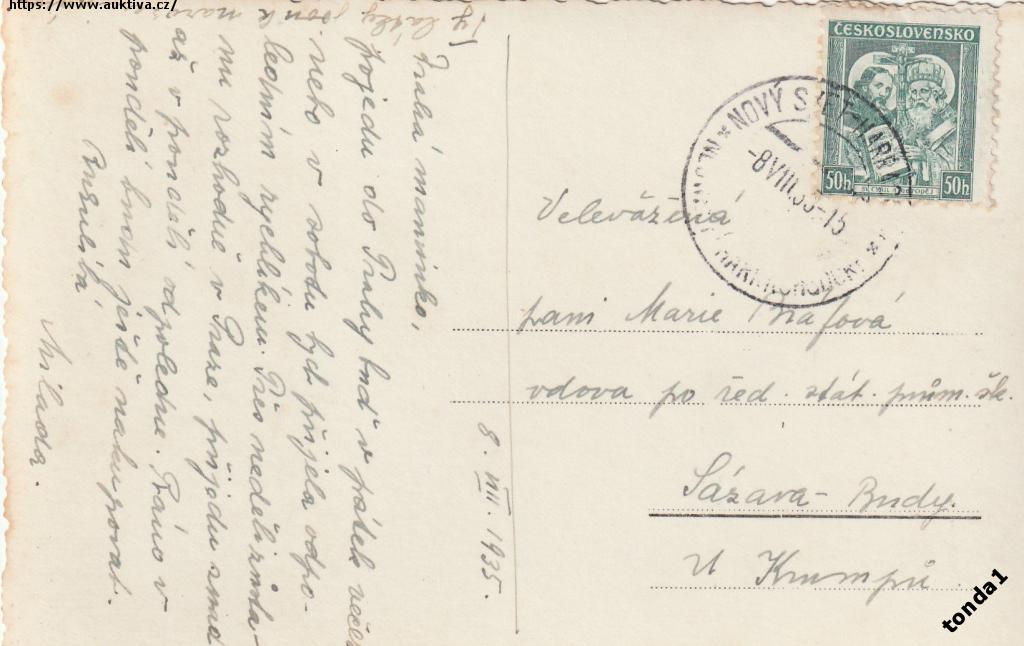 https://www.auktiva.cz/
Drahá maminko,
pojedu do Prahy buď v pátek večer
nebo v sobotu bych přijela odpo-
ledním rychlíkem. Přes neděli
mu v Praze, přijedu
až v pondělí odpoledne. Ráno v
pondělí budem ještě nakupovat.
Milada.
8. VIII. 1935.
ČESKOSLOVENSKO
50h 50h
NOVÝ SVĚT-HARRACHOV
-8.VIII.35-15
Velevážená
paní Marie
vdova po řed. stát. prům. šk.
Sázava-Budy.
U Krumpů.
tonda1